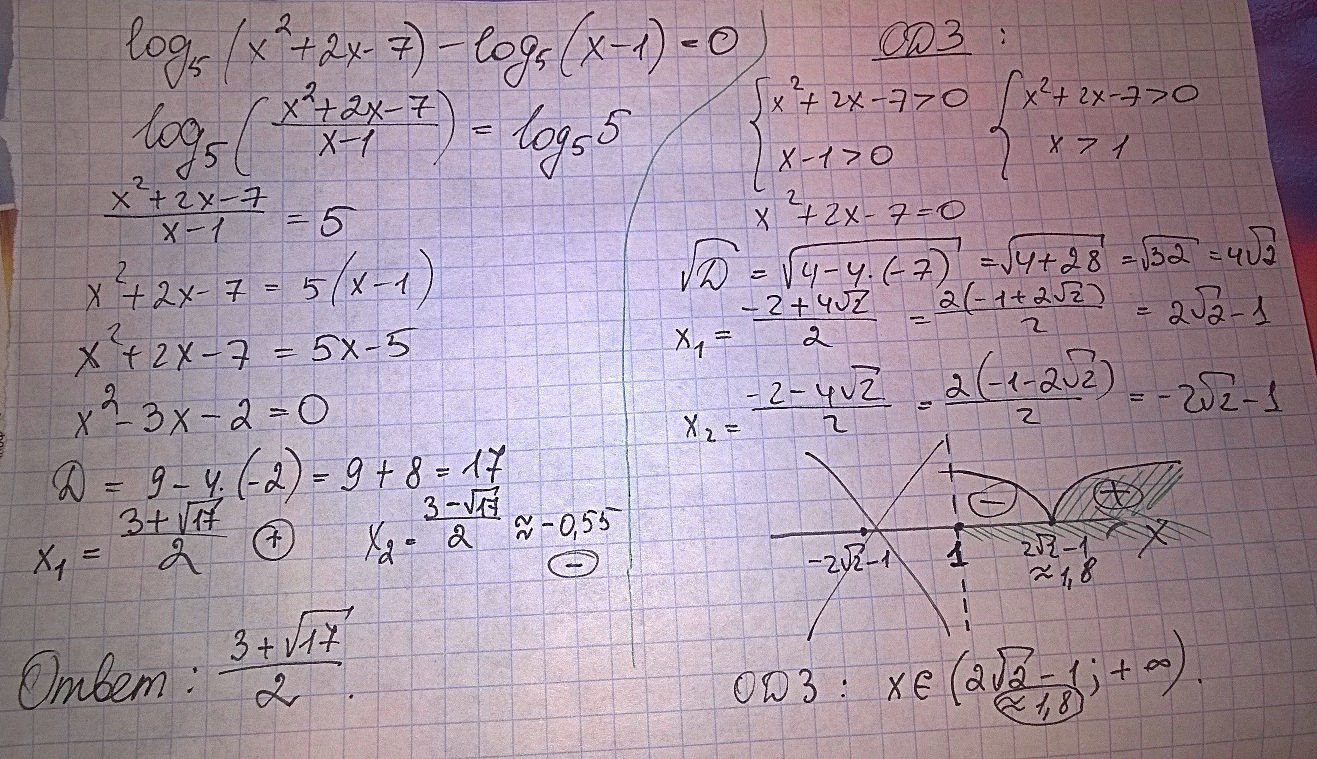 log₅(x²+2x-7)-log₅(x-1)=0
log₅((x²+2x-7)/(x-1)) = log₅5
(x²+2x-7)/(x-1) = 5
x²+2x-7 = 5(x-1)
x²+2x-7 = 5x-5
x²-3x-2=0
D = 9-4·(-2)=9+8=17
x₁ = (3+√17)/2 (+) x₂ = (3-√17)/2 ≈ -0,55 (-)
Ответ: (3+√17)/2.
ОДЗ:
{x²+2x-7>0 {x²+2x-7>0
x-1>0 x>1
x²+2x-7=0
√D = √(4-4·(-7)) = √(4+28) = √32 = 4√2
x₁ = (-2+4√2)/2 = 2(-1+2√2)/2 = 2√2-1
x₂ = (-2-4√2)/2 = 2(-1-2√2)/2 = -2√2-1
- +
-2√2-1 1 2√2-1 x
≈1,8
ОДЗ: x∈(2√2-1;+∞).
≈1,8